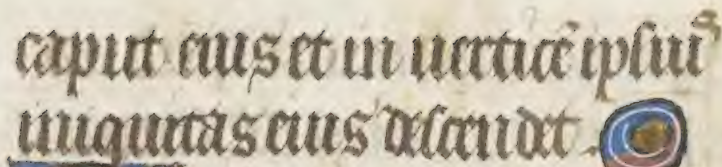 caput eius et in uerticẽ ipsiuˢ
iniquitas eius descendet .